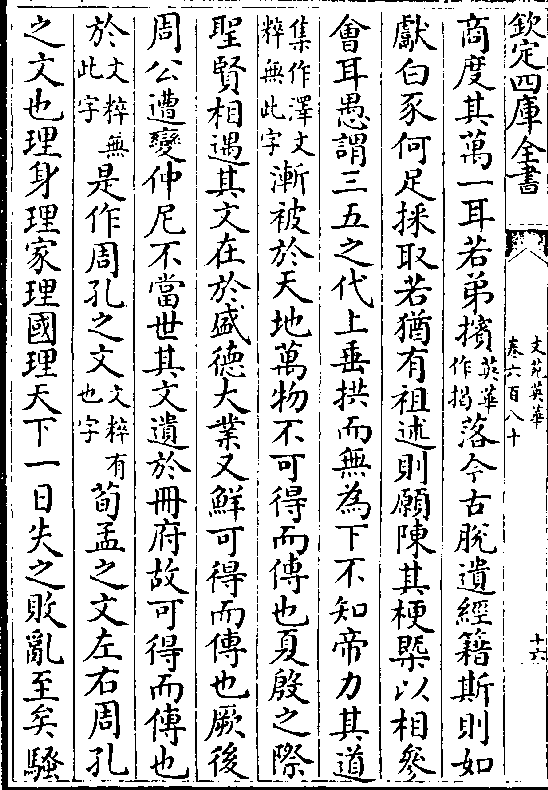 欽定四庫全書
文苑英華
卷六百八十
十六
商度其萬一耳若弟擯英華作揭落今古脫遺經籍斯則如
獻白豕何足採取若猶有祖述則願陳其梗槩以相參
會耳愚謂三五之代上垂拱而無為下不知帝力其道
集作澤文粹無此字漸被於天地萬物不可得而傳也夏殷之際
聖賢相遇其文在於盛德大業又鮮可得而傳也厥後
周公遭變仲尼不當世其文遺於冊府故可得而傳也
於文粹無此字是作周孔之文文粹有也字荀孟之文左右周孔
之文也理身理家理國理天下一日失之敗亂至矣騷